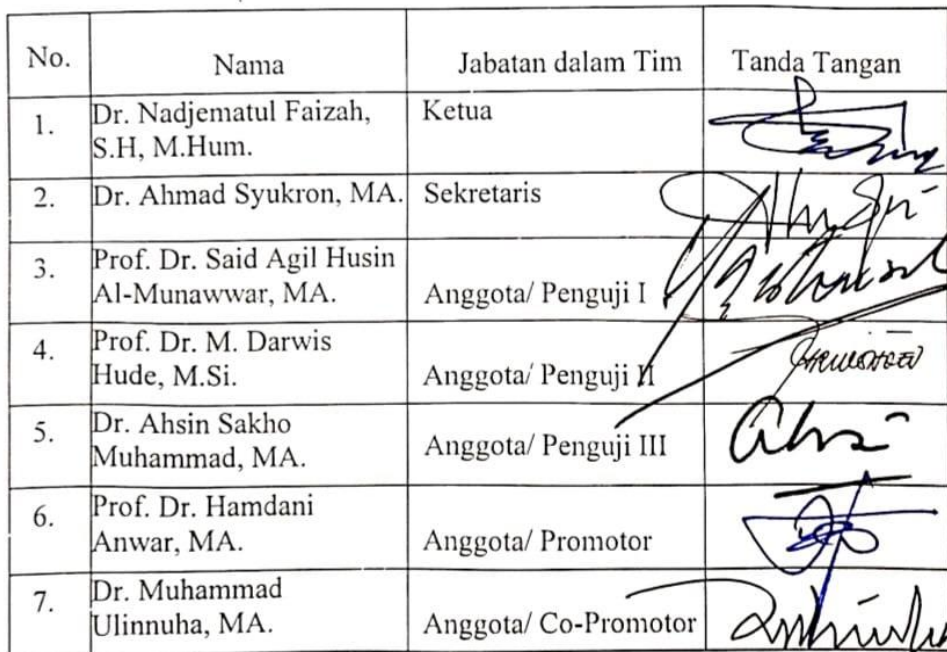 No. Nama Jabatan dalam Tim Tanda Tangan
1. Dr. Nadjematul Faizah, Ketua
S.H, M.Hum.
2. Dr. Ahmad Syukron, MA. Sekretaris
3. Prof. Dr. Said Agil Husin
Al-Munawwar, MA. Anggota/ Penguji I
4. Prof. Dr. M. Darwis
Hude, M.Si. Anggota/ Penguji II
5. Dr. Ahsin Sakho
Muhammad, MA. Anggota/ Penguji III
6. Prof. Dr. Hamdani
Anwar, MA. Anggota/ Promotor
7. Dr. Muhammad
Ulinnuha, MA. Anggota/ Co-Promotor